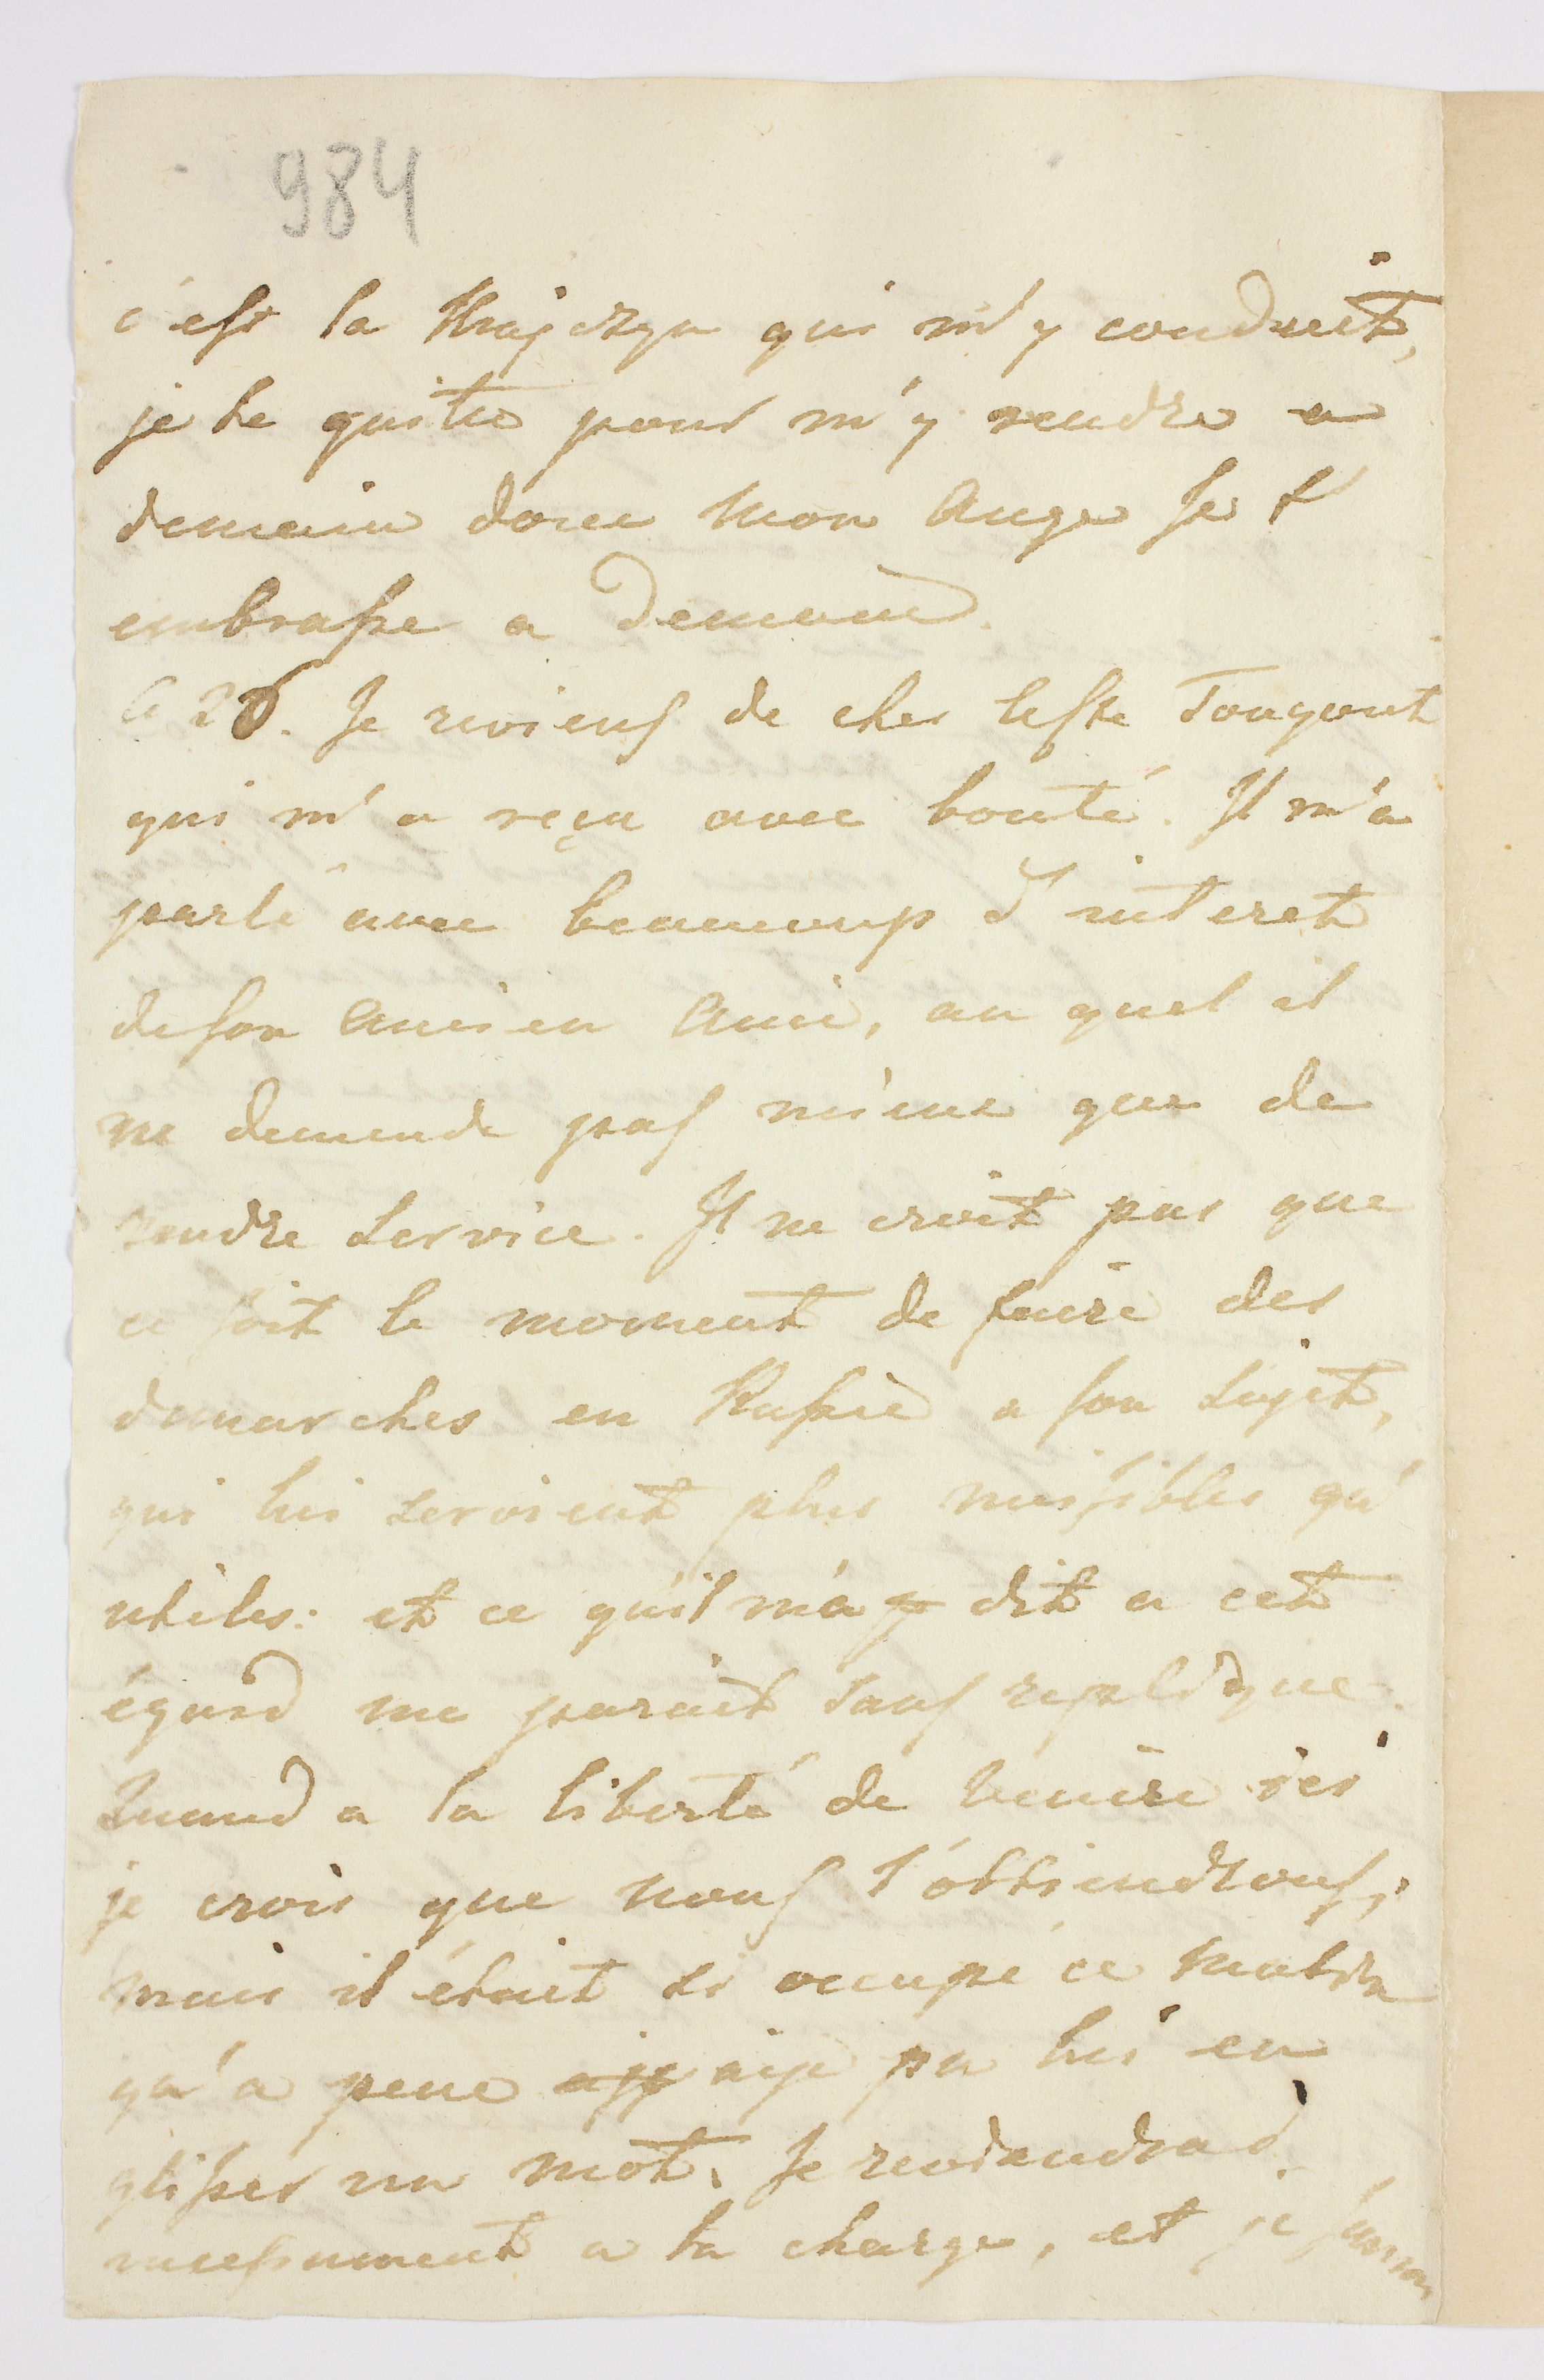 984
c'est la Krajczya qui m'y conduit,
je te quitte pour m'y rendre a
demain donc mon Ange Je t'
embrasse a demain.
le 26. Je reviens de chez Tougout
qui m'a reçu avec bonté. Il m'a
parlé avec beaucoup d'interet
de son Ancien Ami, au quel il
ne demende pas mieux que de
rendre service. Il ne croit pas que
ce soit le moment de faire des
demarches en Russie a son sujet,
qui lui seroient plus nuisibles qu'
utiles: et ce qu'il m'a dit a cet
égard me parait sans replique.
Quand a la liberté de venire ici
je crois que nous l'obtiendrons;
mais il étoit si occupé ce matin
qu'a pene aije pu lui en
glisser un mot. Je reviendrai
incessament a la charge, et je